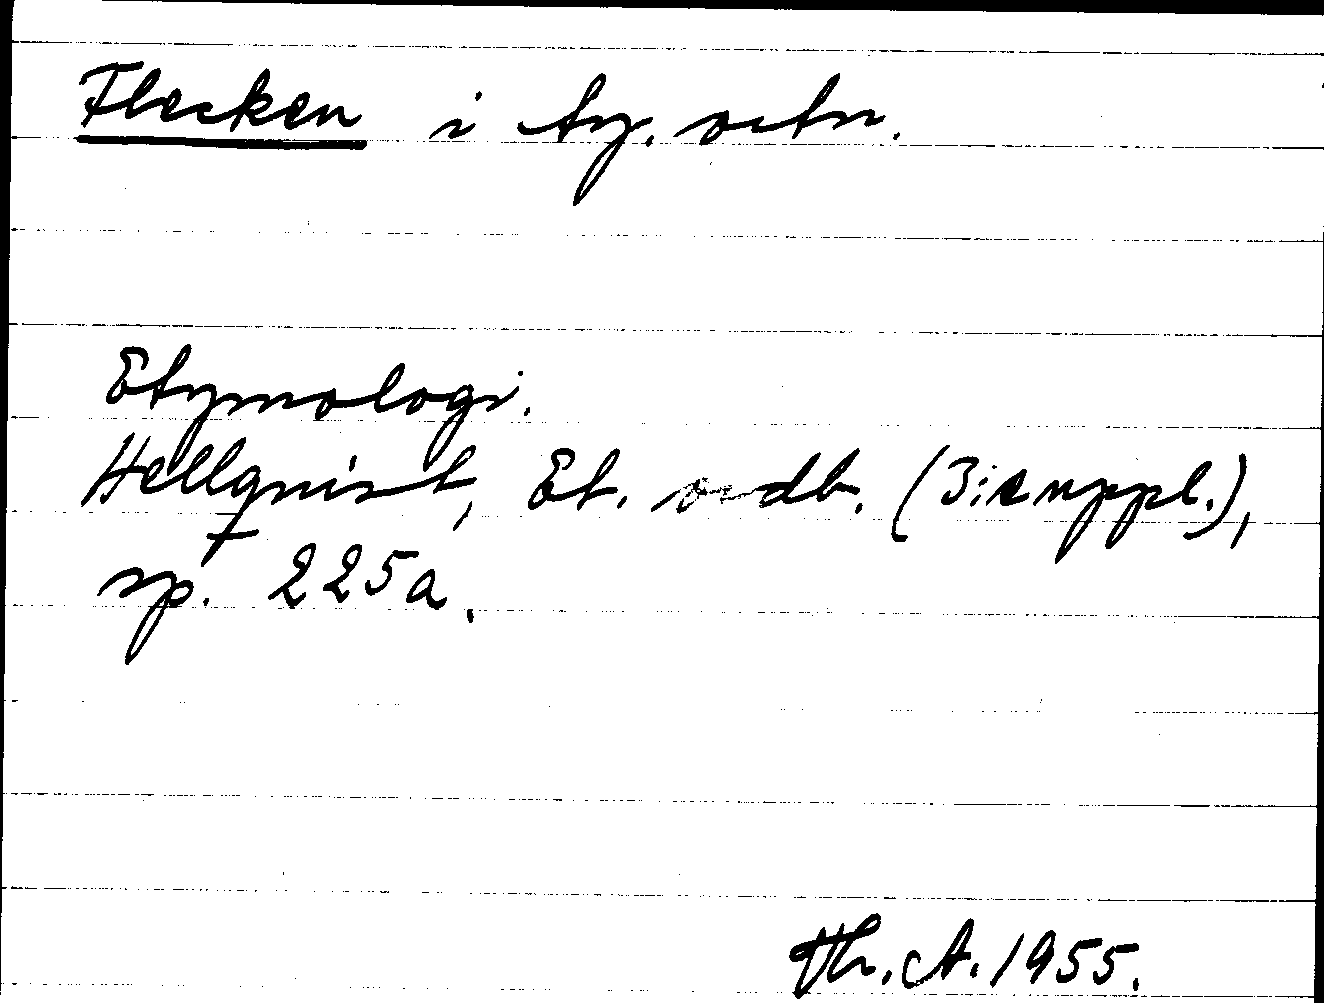 Flecken i ty. ortn.
Etymologi.
Hellquist, Et. ordb. (3:e uppl.),
sp. 225a.
Th. A. 1955.